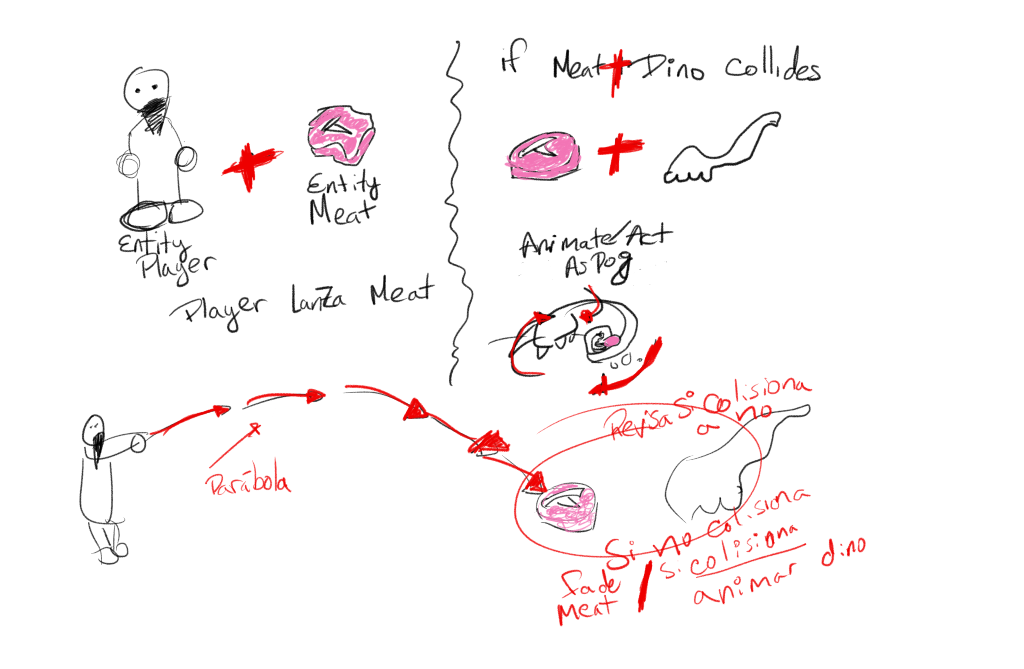 Entity
Player
Entity
Meat
Player Lanza Meat
if Meat + Dino Collides
Animate/Act
As Dog
Parábola
Revisa si colisiona
a no
Si no colisiona
fade
Meat
si colisiona
animar dino